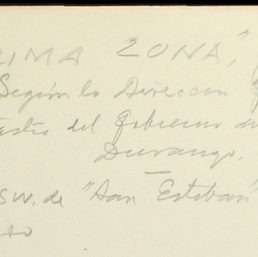 CIMA ZONA",
Según la Direccion
del Gobierno de
Durango.
SW. de "San Esteban"